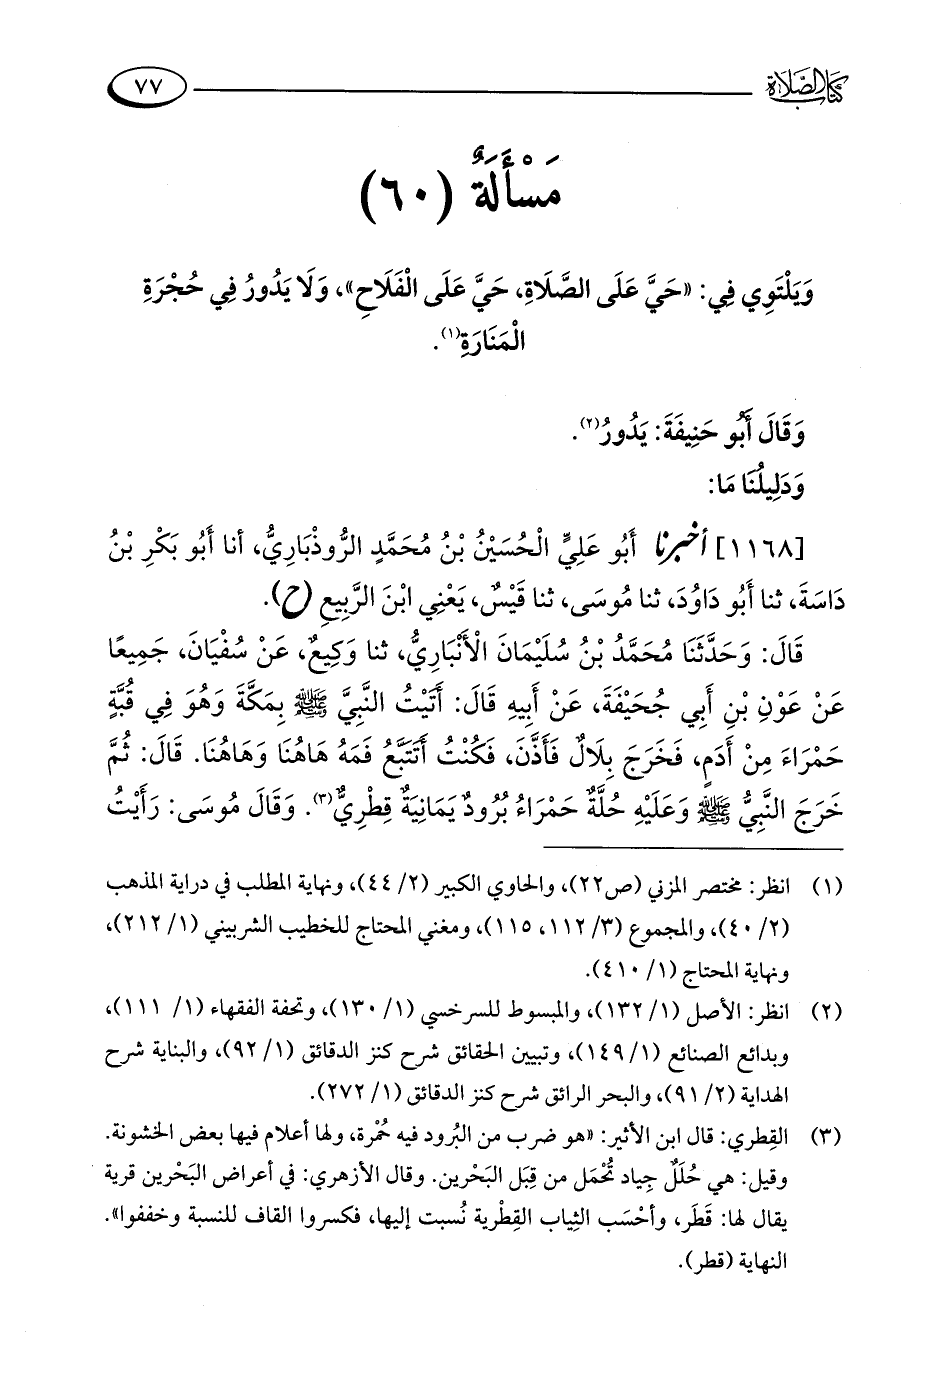 كتاب الصلاة ٧٧
مَسْأَلَةٌ (٦٠)
وَيَلْتَوِي فِي: «حَيَّ عَلَى الصَّلَاةِ، حَيَّ عَلَى الْفَلَاحِ»، وَلَا يَدُورُ فِي حُجْرَةِ
الْمَنَارَةِ(١).
وَقَالَ أَبُو حَنِيفَةَ: يَدُورُ(٢).
وَدَلِيلُنَا مَا:
[١١٦٨] أخبرنا أَبُو عَلِيٍّ الْحُسَيْنُ بْنُ مُحَمَّدٍ الرُّوذْبَارِيُّ، أنا أَبُو بَكْرِ بْنُ
دَاسَةَ، ثنا أَبُو دَاوُدَ، ثنا مُوسَى، ثنا قَيْسٌ، يَعْنِي ابْنَ الرَّبِيعِ (ح).
قَالَ: وَحَدَّثَنَا مُحَمَّدُ بْنُ سُلَيْمَانَ الْأَنْبَارِيُّ، ثنا وَكِيعٌ، عَنْ سُفْيَانَ، جَمِيعًا
عَنْ عَوْنِ بْنِ أَبِي جُحَيْفَةَ، عَنْ أَبِيهِ قَالَ: أَتَيْتُ النَّبِيَّ ﷺ بِمَكَّةَ وَهُوَ فِي قُبَّةٍ
حَمْرَاءَ مِنْ أَدَمٍ، فَخَرَجَ بِلَالٌ فَأَذَّنَ، فَكُنْتُ أَتَتَبَّعُ فَمَهُ هَاهُنَا وَهَاهُنَا. قَالَ: ثُمَّ
خَرَجَ النَّبِيُّ ﷺ وَعَلَيْهِ حُلَّةٌ حَمْرَاءُ بُرُودٌ يَمَانِيَةٌ قِطْرِيٌّ(٣). وَقَالَ مُوسَى: رَأَيْتُ
(١) انظر: مختصر المزني (ص٢٢)، والحاوي الكبير (٢/ ٤٤)، ونهاية المطلب في دراية المذهب
(٢/ ٤٠)، والمجموع (٣/ ١١٢، ١١٥)، ومغني المحتاج للخطيب الشربيني (١/ ٢١٢)،
ونهاية المحتاج (١/ ٤١٠).
(٢) انظر: الأصل (١/ ١٣٢)، والمبسوط للسرخسي (١/ ١٣٠)، وتحفة الفقهاء (١/ ١١١)،
وبدائع الصنائع (١/ ١٤٩)، وتبيين الحقائق شرح كنز الدقائق (١/ ٩٢)، والبناية شرح
الهداية (٢/ ٩١)، والبحر الرائق شرح كنز الدقائق (١/ ٢٧٢).
(٣) القِطري: قال ابن الأثير: «هو ضرب من البُرود فيه حُمْرة، ولها أعلام فيها بعض الخشونة.
وقيل: هي حُلَلٌ جِياد تُحْمَل من قِبَل البَحْرين. وقال الأزهري: في أعراض البَحْرين قرية
يقال لها: قَطَر، وأحْسَب الثِياب القِطْرية نُسبت إليها، فكسروا القاف للنسبة وخففوا».
النهاية (قطر).